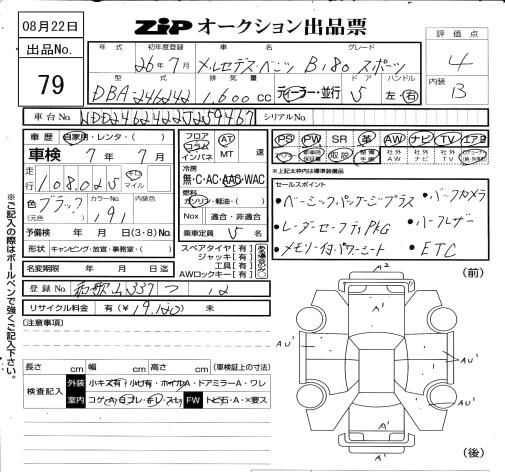 08月22日
ZIP オークション出品票
出品No.
79
年式 初年度登録 車名 グレード
26年7月 メルセデス・ベンツ B180 スポーツ
型式 排気量 ドア ハンドル
DBA-246242 1,600cc ディーラー・並行 5 左・右
評価点
4
内装
B
車台No. WDD2462422J259467 シリアルNo.
車歴 自家用・レンタ・( )
車検 7年7月
走行 108,025 Km マイル
色 ブラック カラーNo. 191 内装色
(元色)
予備検 年 月 日(3・8)No.
形状 キャンピング・放宣・事務室・( )
名変期限 年 月 日迄
登録No. 和歌山 337 つ 12
リサイクル料金 有(¥ 19,120) 未
フロア コラム インパネ AT MT 速
冷房
無・C・AC・AAC・WAC
燃料
ガソリン・軽油・( )
Nox 適合・非適合
乗車定員 5 名
スペアタイヤ[有]
ジャッキ[有]
工具[有]
AWロックキー[有]
PS PW SR 革 AW ナビ TV エアB
取説 社外AW 社外ナビ 社外TV
※上記太枠内は標準装備品
セールスポイント
・ベーシックパッケージプラス
・レーダーセーフティPKG
・メモリー付パワーシート
・バックカメラ
・ハーフレザー
・ETC
[注意事項]
長さ cm 幅 cm 高さ cm (車検証上の寸法)
検査記入 外装 小キズ有・小凹有・ホイルA・ドアミラーA・ワレ
室内 コゲ・穴・ヨゴレ・キレ・スレ FW トビ石・A・×要ス
※ご記入の際はボールペンで強くご記入下さい。
(前)
A2
AU'
AU'
AU'
AU'
A'
A'
(後)